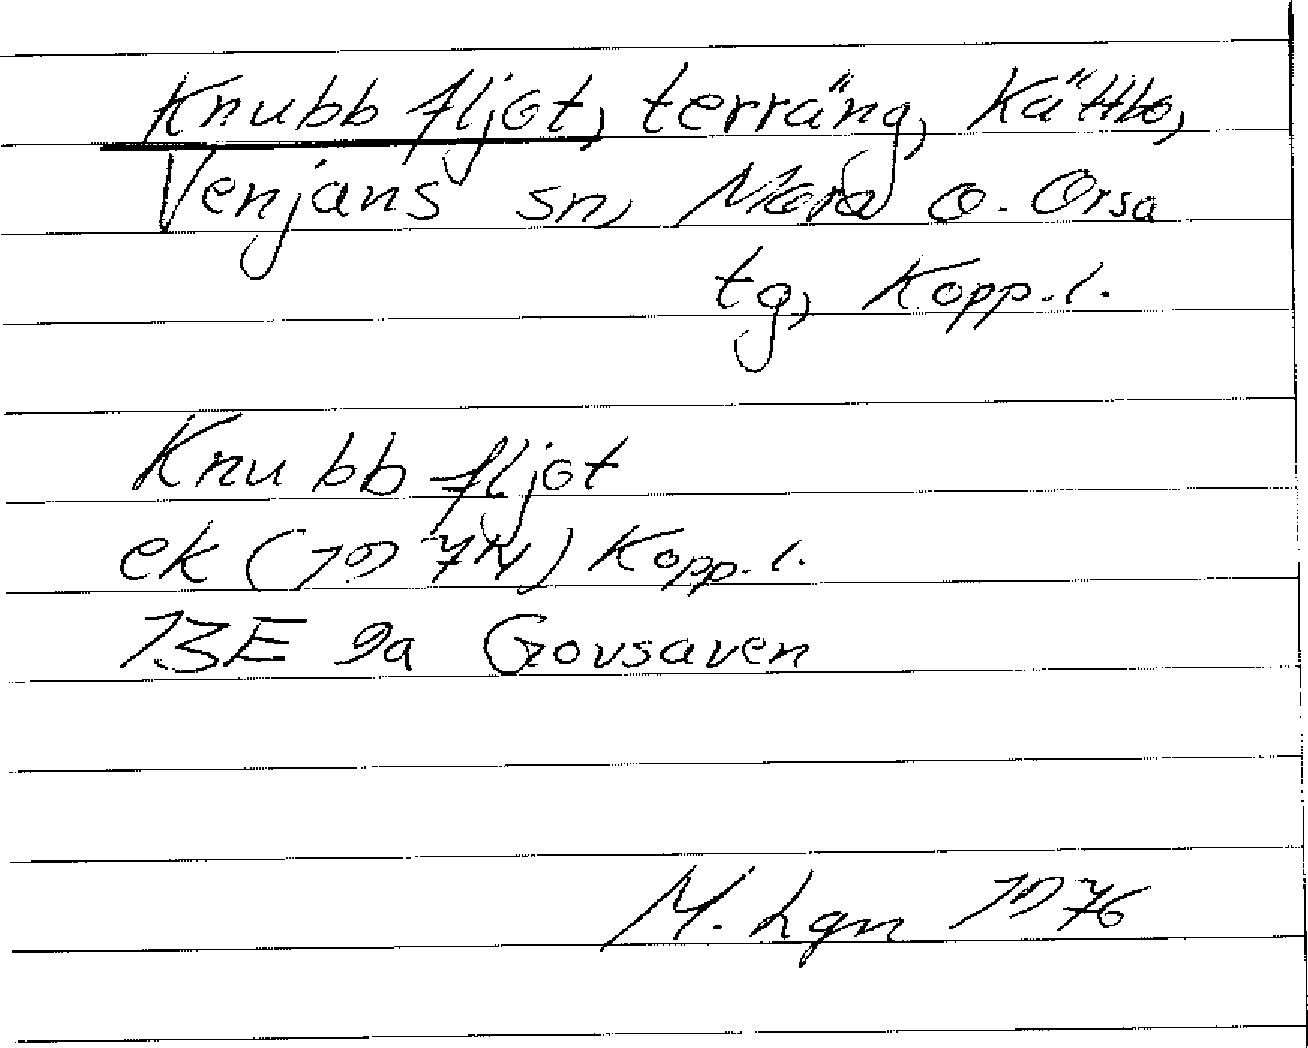 Knubbfljot, terräng, Kättbo,
Venjans sn, Mora o. Orsa
tg, Kopp. l.
Knubbfljot
ek (1974) Kopp. l.
13E 9a Govsaven
M. Lgn 1976